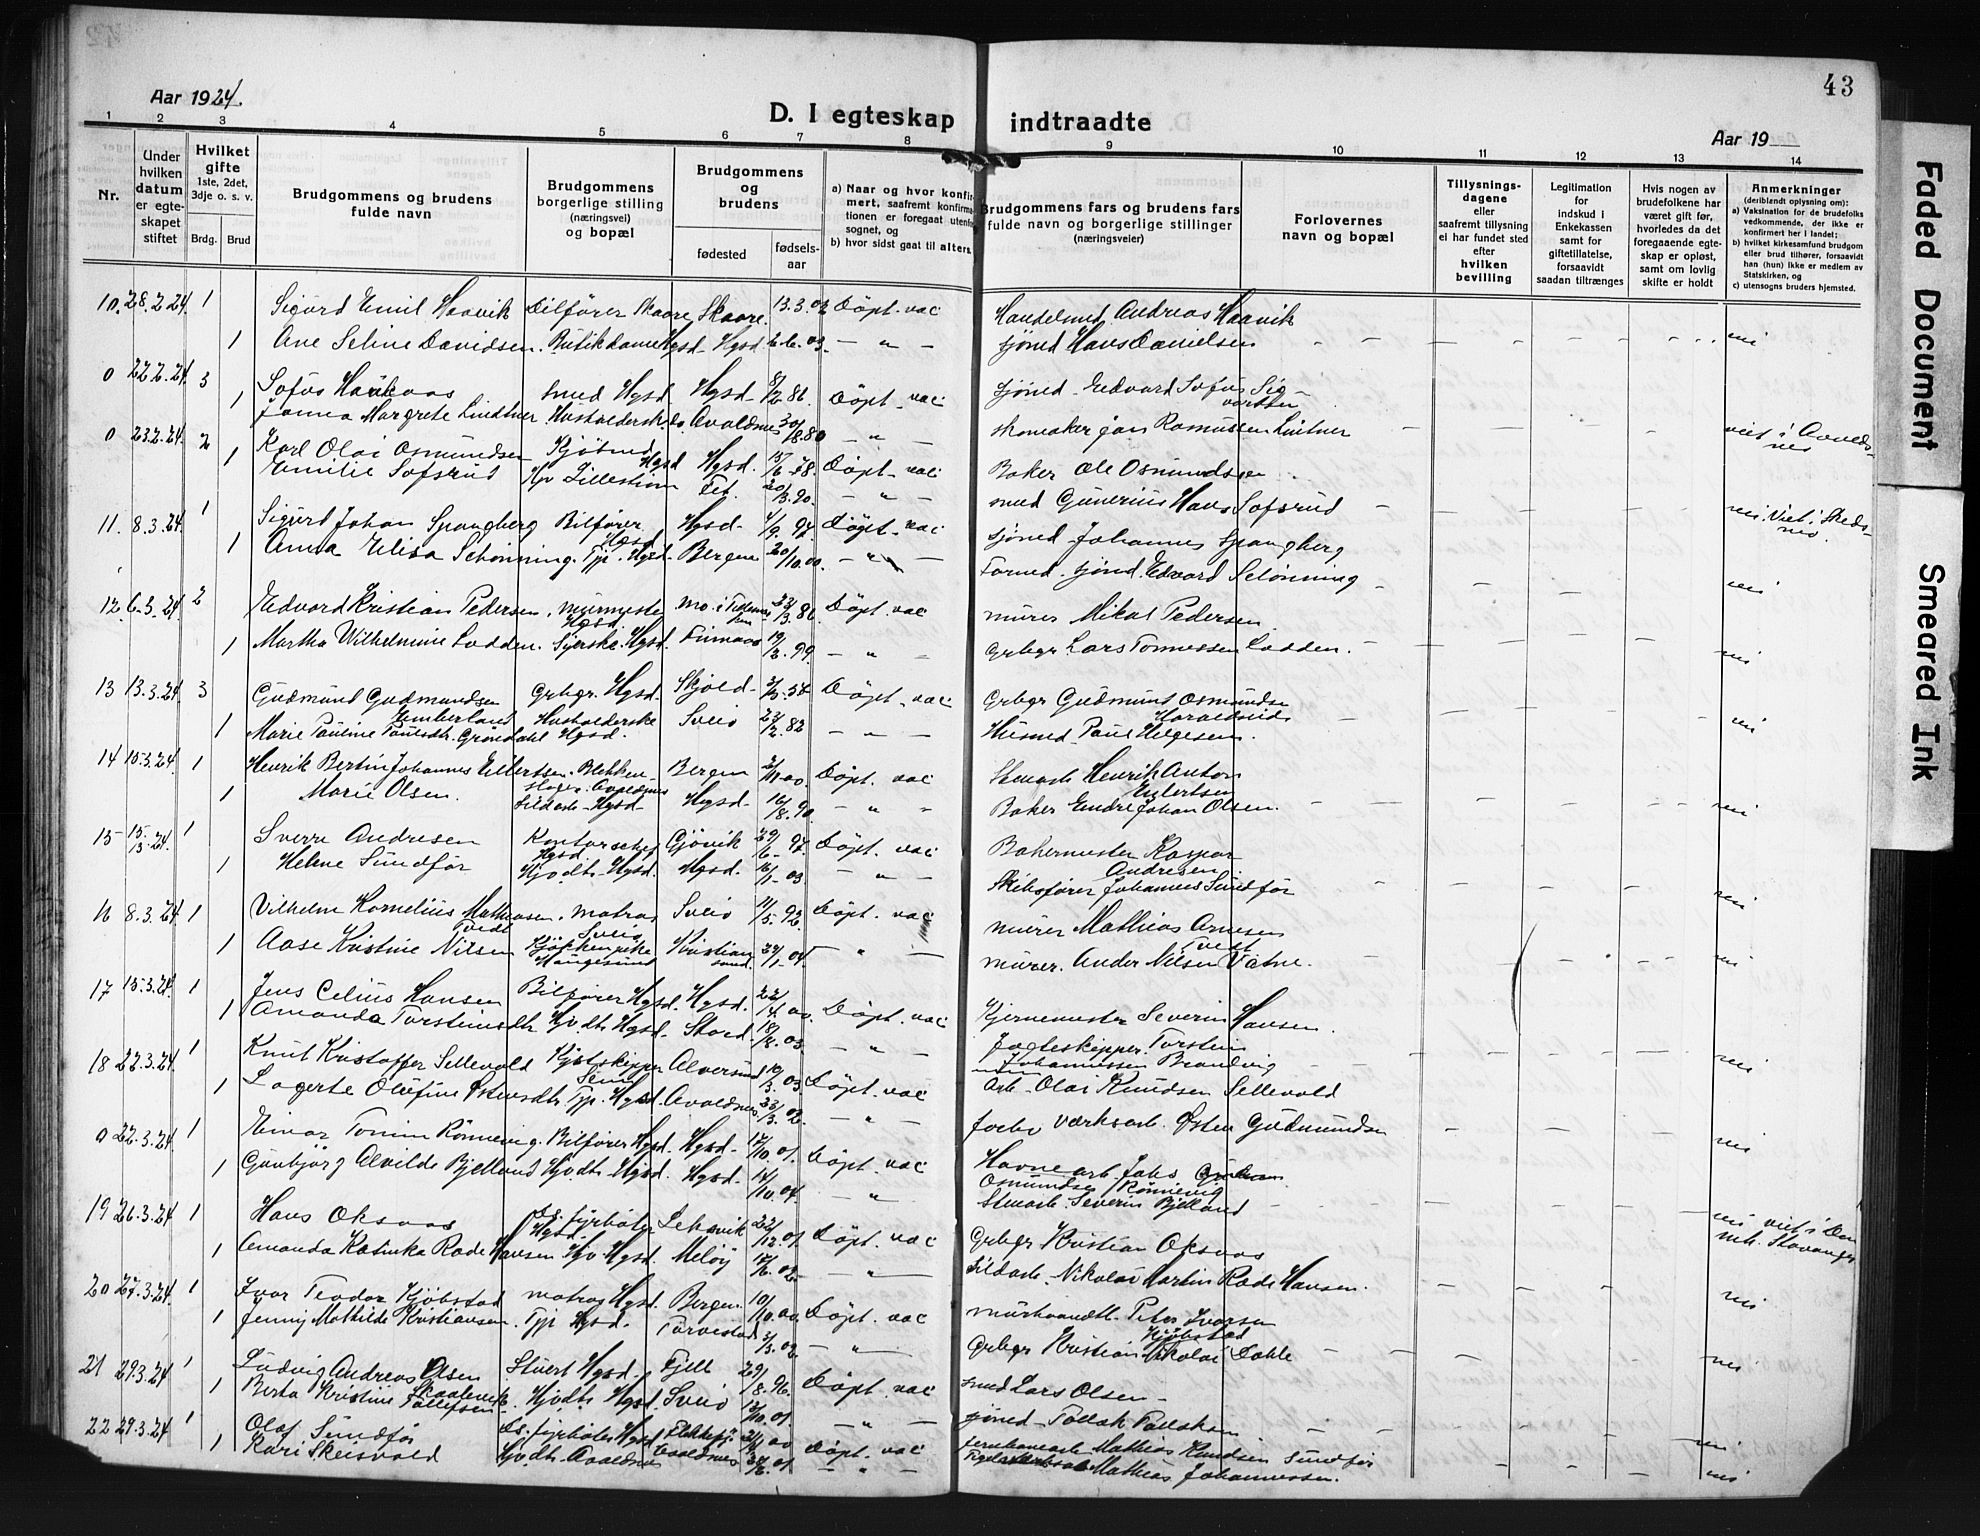 43
Aar 1924.
D. I egteskap indtraadte
Aar 19
1 2 3 4 5 6 7 8 9 10 11 12 13 14
Nr.
Under hvilken datum er egteskapet stiftet
Hvilket gifte 1ste, 2det, 3dje o. s. v.
Brdg. Brud
Brudgommens og brudens fulde navn
Brudgommens borgerlige stilling (næringsvei) og bopæl
Brudgommens og brudens
fødested
fødsels-aar
a) Naar og hvor konfirmert, saafremt konfirmationen er foregaat utenfor sognet, og
b) hvor sidst gaat til alters.
Brudgommens fars og brudens fars fulde navn og borgerlige stillinger (næringsveier)
Forlovernes navn og bopæl
Tillysnings-dagene eller saafremt tillysning ei har fundet sted efter hvilken bevilling
Legitimation for indskud i Enkekassen samt for giftetillatelse, forsaavidt saadan tiltrænges
Hvis nogen av brudefolkene har været gift før, hvorledes da det foregaaende egteskap er opløst, samt om lovlig skifte er holdt
Anmerkninger (deriblandt oplysning om):
a) Vaksination for de brudefolks vedkommende, der ikke er konfirmert her i landet;
b) hvilket kirkesamfund brudgom eller brud tilhører, forsaavidt han (hun) ikke er medlem av Statskirken, og
c) utensogns bruders hjemsted.
10. 28.2.24. 1 Sigurd Emil Haavik Bilfører Skaare Skaare. 13.3.02 Døpt. vac Handelsmd. Andreas Haavik
1 Ane Seline Davidsen. Butikdame Hgsd Hgsd 2.6.03. — " — sjömd Hans Danielsen nei
0 22.2.24. 3 Sofus Haukaas smed Hgsd Hgsd 8/2 86. Døpt. vac sjömd. Edvard Sofus Sivertsen
1 Janna Margrete Lindtner Husholderske do. Avaldnes 30/8.80 — " — skomaker Jan Rasmussen Lintner viet i Avaldsnes
0 23.2.24. 2 Karl Olai Osmundsen Kjøbmd Hgsd Hgsd. 15/6.78. Døpt. vac Baker Ole Osmundsen
1 Emilie Sofsrud Hv Lillestrøm Fet. 20/3.90. — " — smed Gunerius Hans Sofsrud nei. Viet i Skedsmo.
11. 8.3.24. 1 Sigurd Johan Spangberg Bilfører Hgsd Hgsd. 4/9.97. Døpt. vac sjömd Johannes Spangberg
1 Anna Elisa Schönning. Tjp. Hgsd. Bergen 20/10.00. — " — Formd. sjömd. Edvard Schönning nei
12. 6.3.24 2 Edvard Kristian Pedersen. murmester Hgsd 23/3.86. Døpt. vac murer Mikal Pedersen.
1 Martha Wilhelmine Lodden. Syerske. Hgsd. Finnaas 19/2.99 — " — Grbgr Lars Tonnessen Lodden. nei
13 13.3.24 3 Gudmund Gudmundsen Emberland Grbgr. Hgsd. Skjold Døpt. vac Grbgr Gudmund Osmundsen
1 Marie Pauline Paulsdtr. Gröndahl Husholderske Hgsd. Sveio 23/2.82 — " — Husmd. Paul Helgesen. nei
14 15.3.24. 1 Henrik Bertin Johannes Eilertsen. Blikkenslager. Avaldnes Bergen 2/11.00. Døpt. vac Stuearb Henrik Anton Eilertsen
1 Marie Olsen. Sildarb. Hgsd. Hgsd. 16/8.90. — " — Baker Endre Johan Olsen. nei
15 15/3.24. 1 Sverre Andresen Kontorschef Hgsd. Gjövik 29/6.97. Døpt. vac Bakermester Kaspar Andresen.
1 Helene Sundför Hjvdtr. Hgsd. Hgsd. 16/1.03 — " — Skibsfører Johannes Sundför nei
16 8.3.24 1 Vilhelm Kornelius Mathiasen Tvedt. matros Sveio Sveio 11/5.92. Døpt. vac murer Mathias Arnesen Tvedt
1 Aase Kristine Nilsen Kjökkenpike Haugesund Kristiansund. 29/1.04. — " — murer. Ander Nilsen Vatne. nei
17 15.3.24. 1 Jens Celius Hansen Bilfører Hgsd. Hgsd. 22/4.00. Døpt. vac Kjernemester Severin Hansen.
1 Amanda Torsteinsdtr Hjvdtr Hgsd. Stord. 18/8.03 — " — Jagteskipper. Torstein Johannessen Brandvig nei
18 22.3.24. 1 Knut Kristoffer Sellevold Alversund 10/3.03 Døpt. vac Arb. Olai Knudsen Sellevold
1 Lagerte Olufine Østensdtr Tjp. Hgsd. Avaldnes. 23/3.02. — " — forhv værksarb. Østen Gudmundsen nei
0 22.3.24. 1 Einar Tonim Rönnevig. Bilfører Hgsd. Hgsd. 17/10.01. Døpt. vac Havnearb. Johs Osmundsen Rönnevig
1 Gunbjörg Alvilde Bjelland Hjvdtr. Hgsd. Hgsd. 14/10.04. — " — Stuearb. Severin Bjelland nei viet i Stavanger
19 26.3.24 1 Hans Oksnes Ds. fyrböter Hgsd. Leksvik 22/12.01. Døpt. vac Grbgr Kristian Oksnes
1 Amanda Katinka Rode Hansen Hv. Hgsd. Meløy 17/6.02. — " — Sildarb. Nikolai Martin Rode Hansen.
20 27.3.24. 1 Ivar Teodor Kjøbstad matros Hgsd. Bergen. 10/10.00 Døpt. vac Peter Ivarsen Kjøbstad nei
1 Jenny Mathilde Kristiansen. Tjp Hgsd. Torvestad 3/3.02. — " — Grbgr Kristian Nikolai Dahle nei
21 29.3.24 1 Ludvig Andreas Olsen Skaalevik Stuert Hgsd. Fjell 29/8.96. Døpt. vac smed Lars Olsen
1 Berta Kristine Tollefsen Hjvdtr Hgsd. Sveio 13/10.01. — " — sjömd. Tollak Tollaksen nei
22 29.3.24 1 Olaf Sundför Ds. fyrböter Hgsd Døpt. vac Mathias Knudsen Sundför nei
1 Kari Skeisvold Hjvdtr. Avaldnes Avaldnes — " — Mathias Johannessen. nei
Faded Document
Smeared Ink